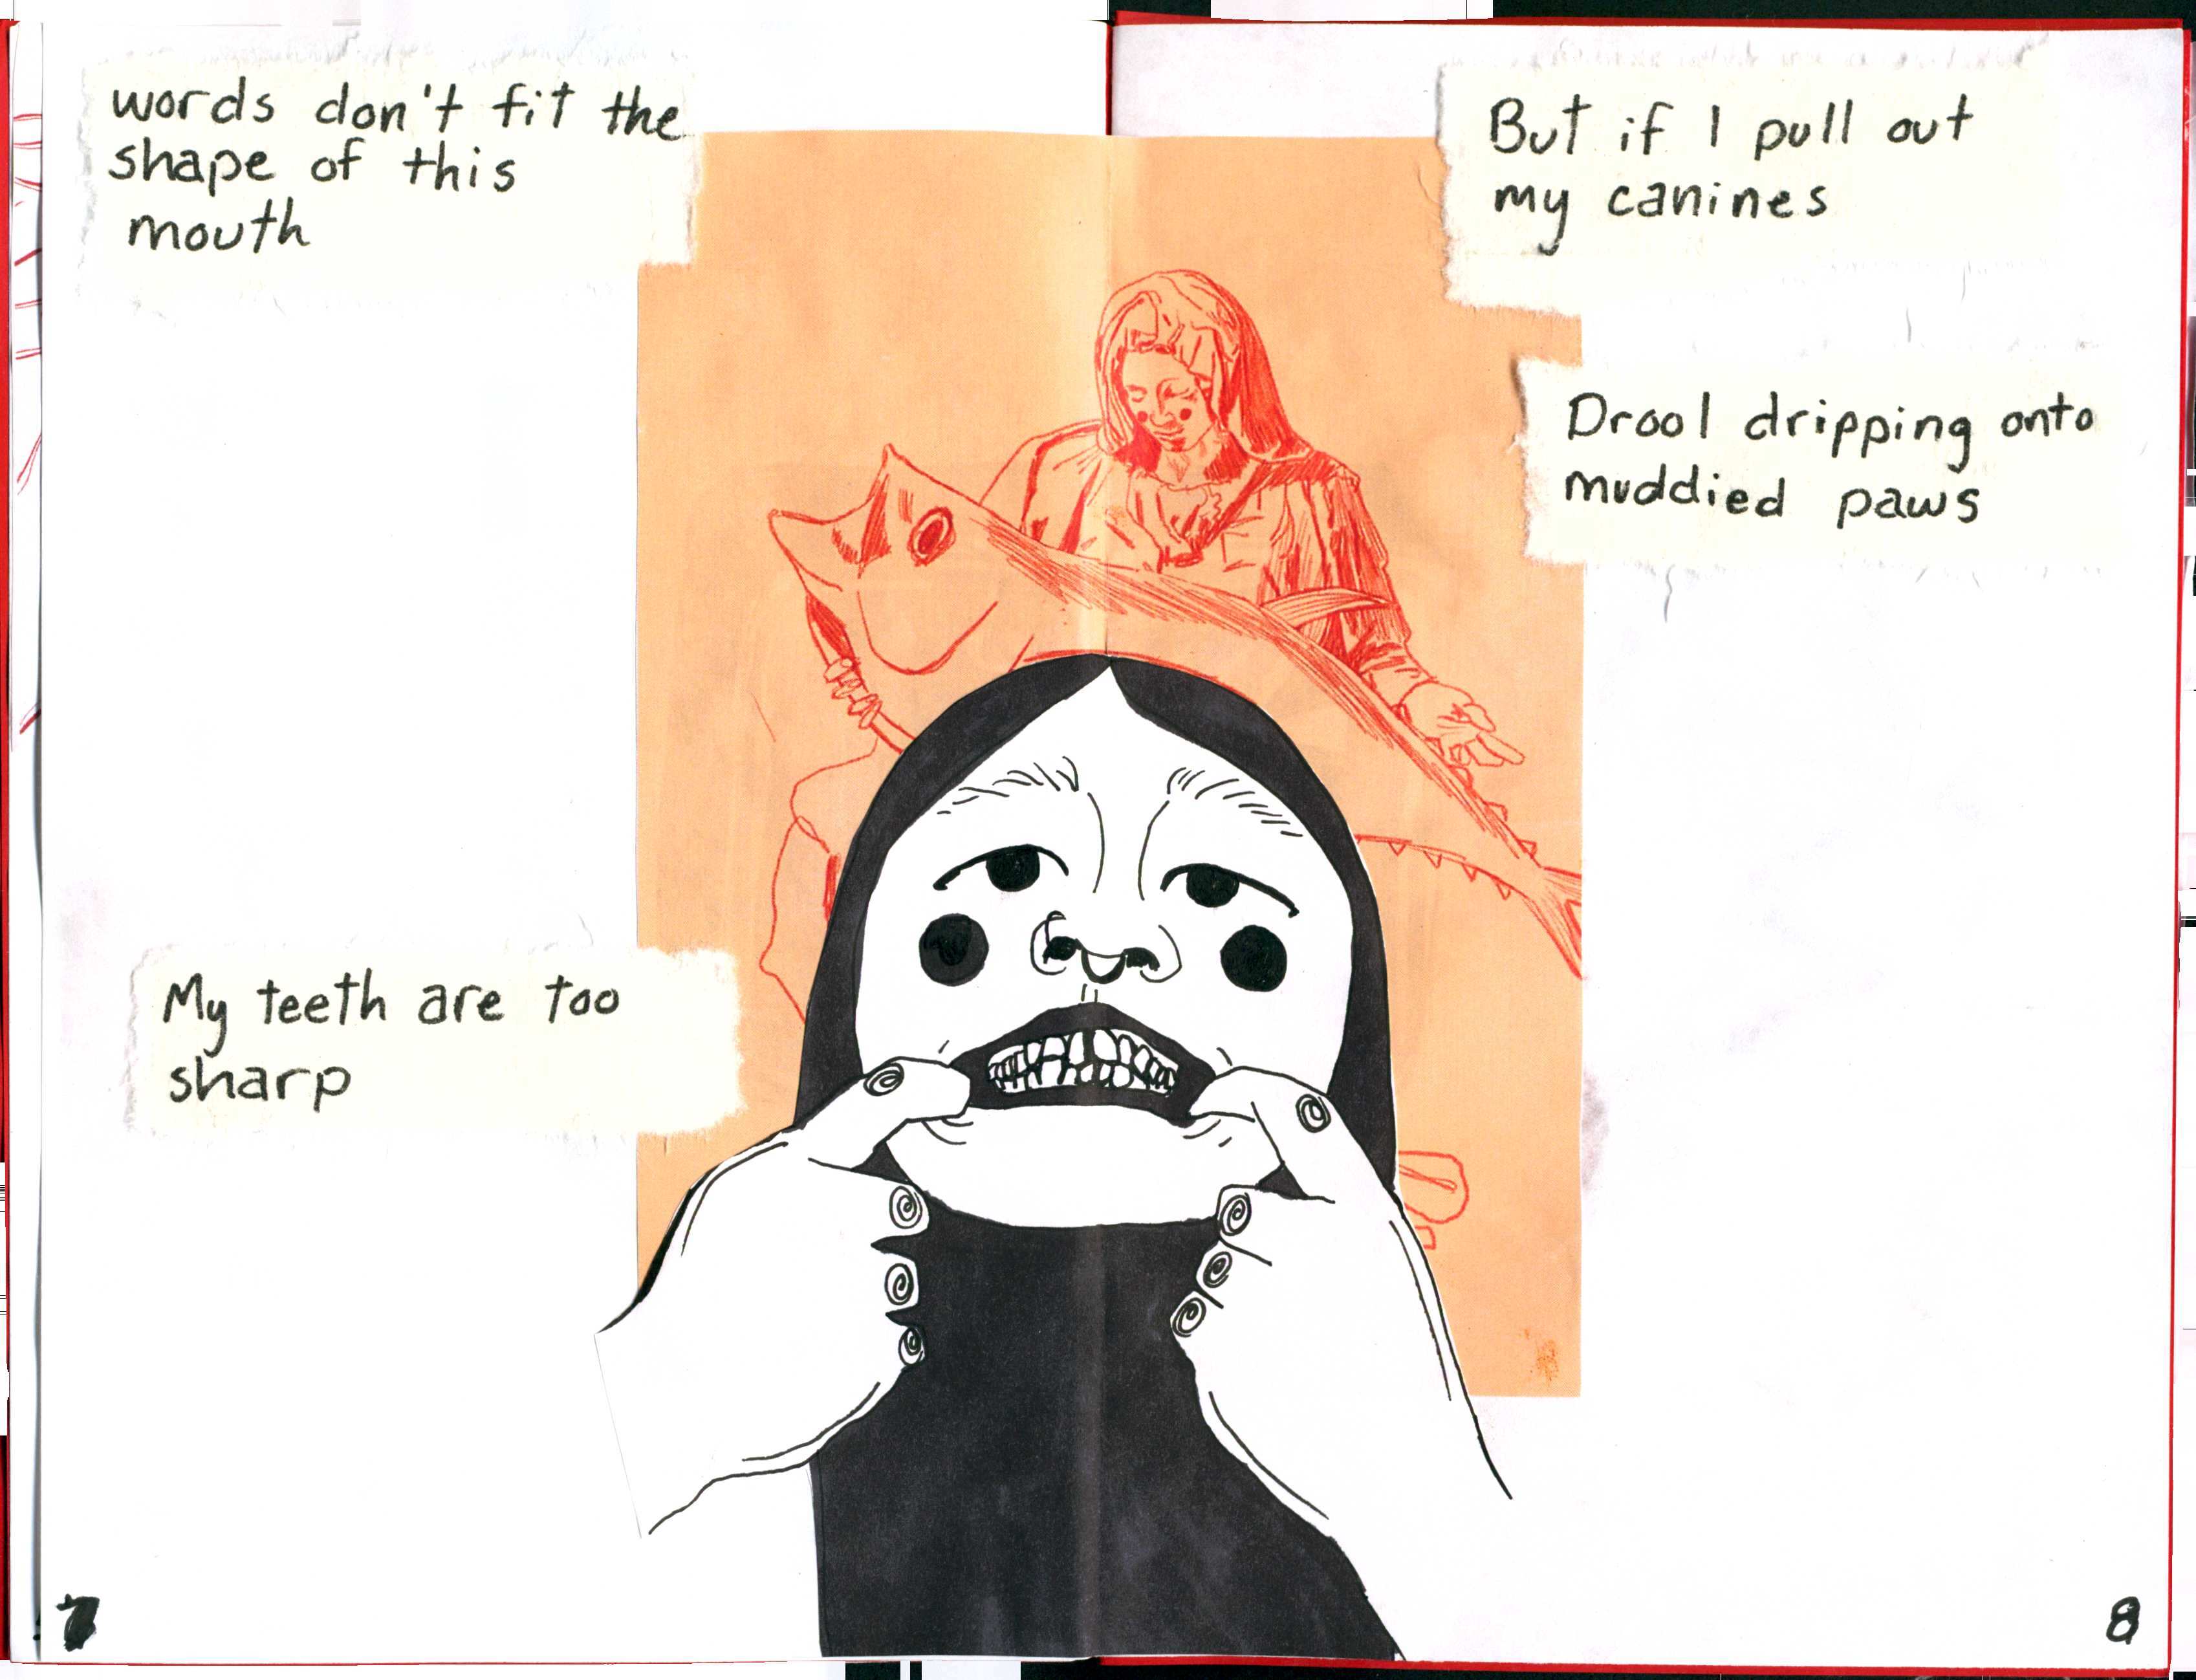 words don't fit the
shape of this
mouth
My teeth are too
sharp
But if I pull out
my canines
Drool dripping onto
muddied paws
7
8